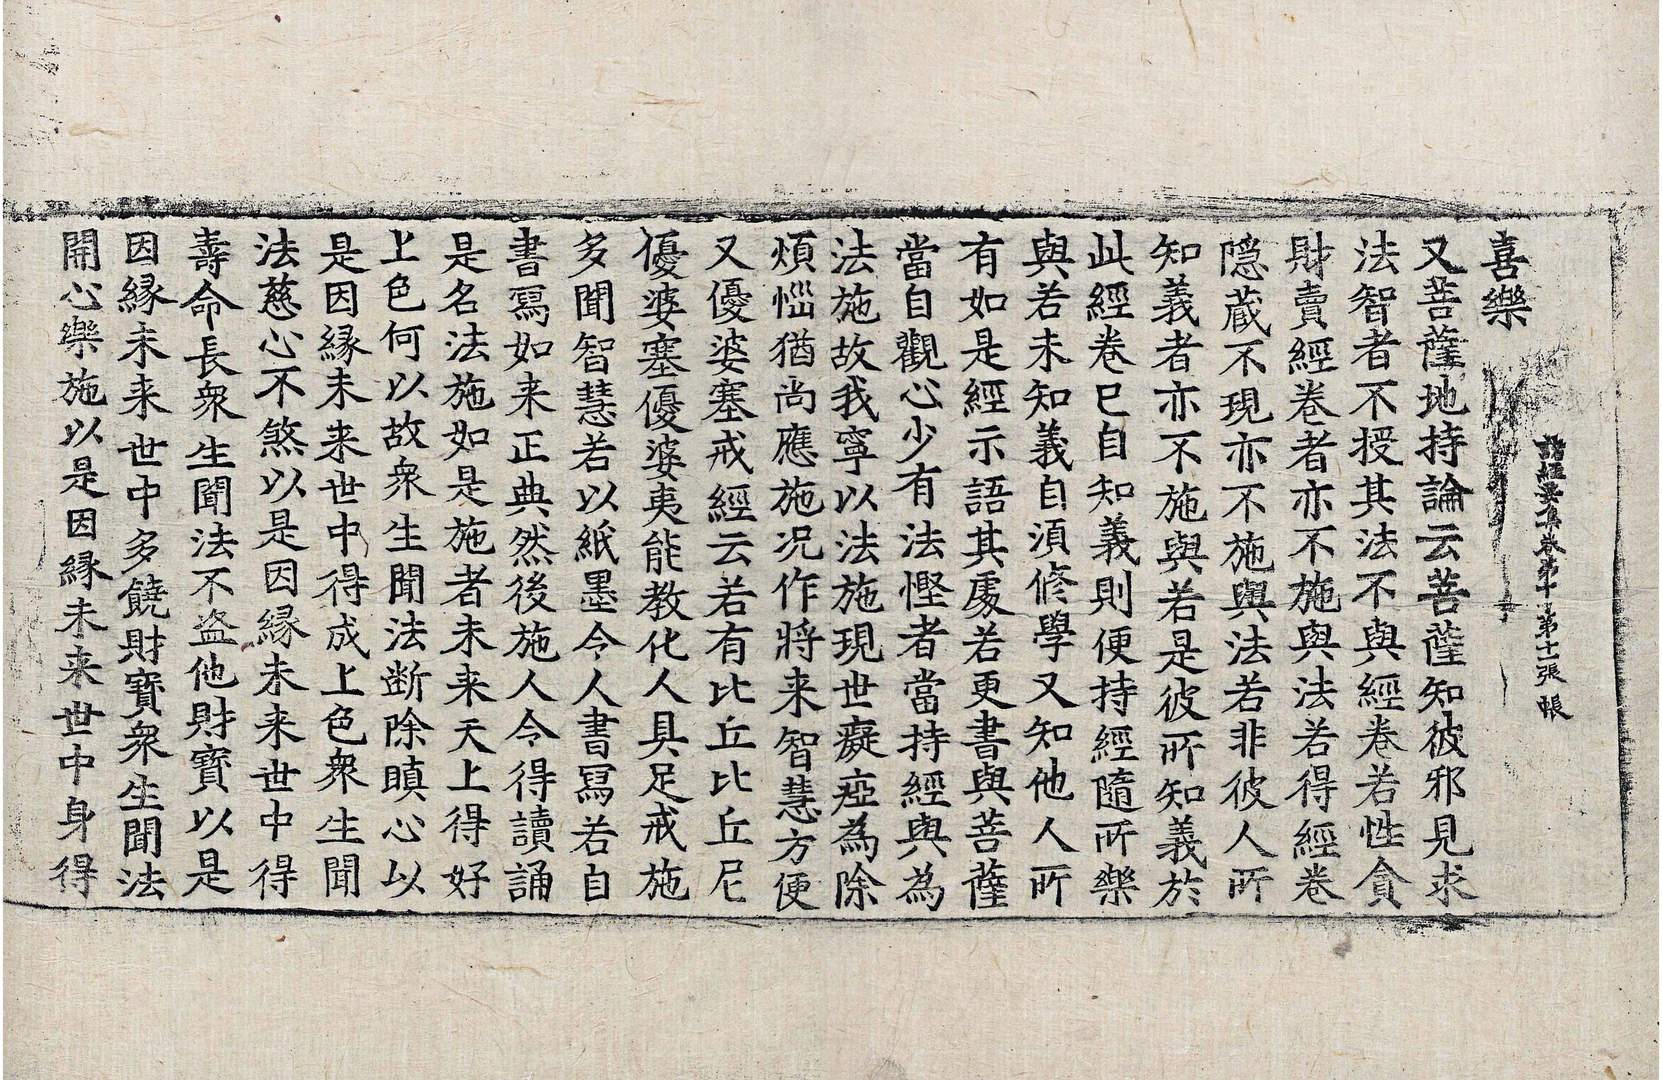 諸經要集卷第十 第十一張 帳
喜樂
又菩薩地持論云菩薩知彼邪見求
法智者不授其法不與經卷若性貪
財賣經卷者亦不施與法若得經卷
隱蔵不現亦不施與法若非彼人所
知義者亦不施與若是彼所知義於
此經卷已自知義則便持經隨所樂
與若未知義自須修學又知他人所
有如是經示語其處若更書與菩薩
當自觀心少有法慳者當持經與為
法施故我寧以法施現世癡瘂為除
煩惱猶尚應施況作將来智慧方便
又優婆塞戒經云若有比丘比丘尼
優婆塞優婆夷能教化人具足戒施
多聞智慧若以紙墨令人書寫若自
書寫如来正典然後施人令得讀誦
是名法施如是施者未来天上得好
上色何以故衆生聞法断除瞋心以
是因縁未来世中得成上色衆生聞
法慈心不煞以是因縁未来世中得
壽命長衆生聞法不盗他財寶以是
因縁未来世中多饒財寶衆生聞法
開心樂施以是因縁未来世中身得